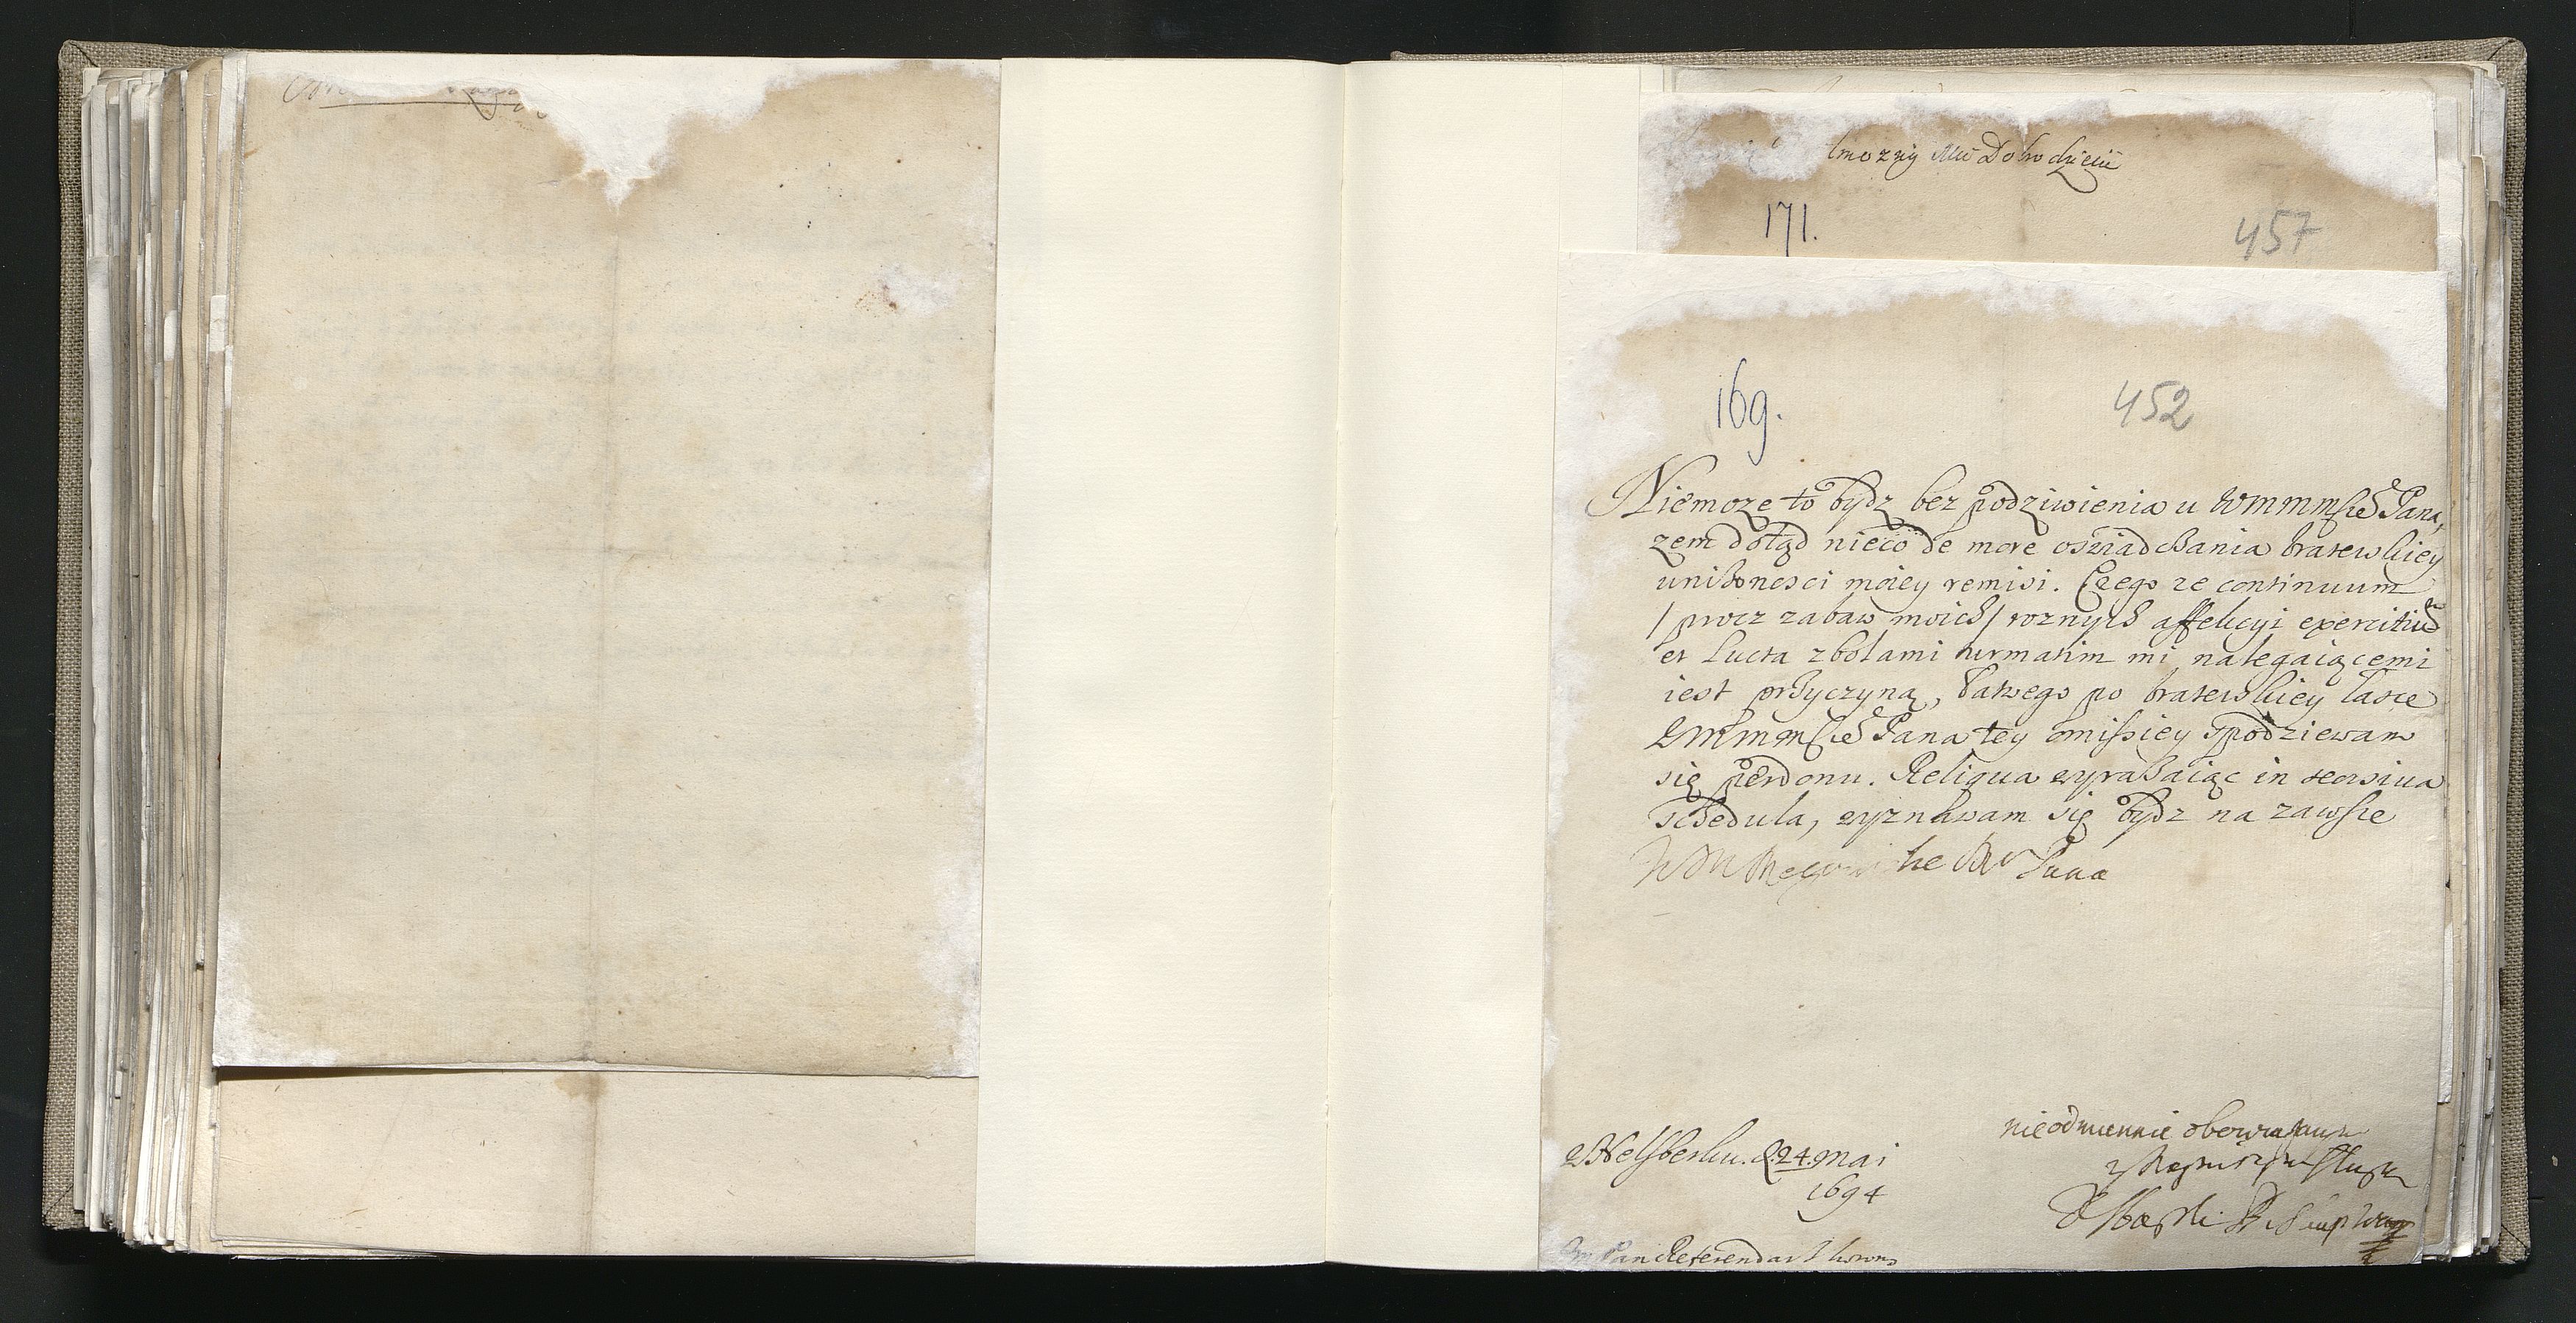 lmozny Mći Dobrodzieiu
171.
457
169.
452
Niemoze to bydz bez podziwienia u WMMMscie͠ Pana,
zem dotąd nieco de more oswiadchania braterskiey
unizonosci moiey remisi. Czego ze continuum
/ procz zabaw moich / roznych affekcyi exercitiu͠
et lucta zbolami turmatim mi nalegaiącemi
iest przyczyną, łatwego po braterskiey lasce
WMMMscie͠ Pana tey omissiey spodziewam
się perdonu. Reliqua wyrazaiąc in seorsiva
schedula, wyznawam się bydz na zawsze
WM Mego Pana
z Helsberku. d. 24. Mai
1694
nieodmiennie obowiązanym
y sługą
Zbąski Bp Warm
Pan Referendarz koron